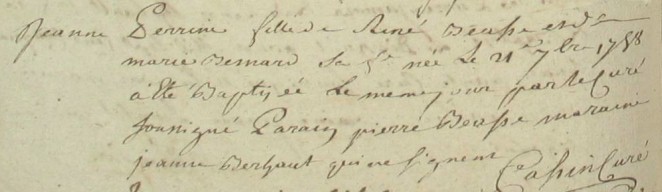 Jeanne Perrine fille de René Beasse et de
marie Besnard sa fe née Le 21e 7bre 1758
a été Baptisée Le meme jour par le Curé
soussigné Parain pierre Beasse maraine
jeanne Berhaut qui ne signent Cassin Curé